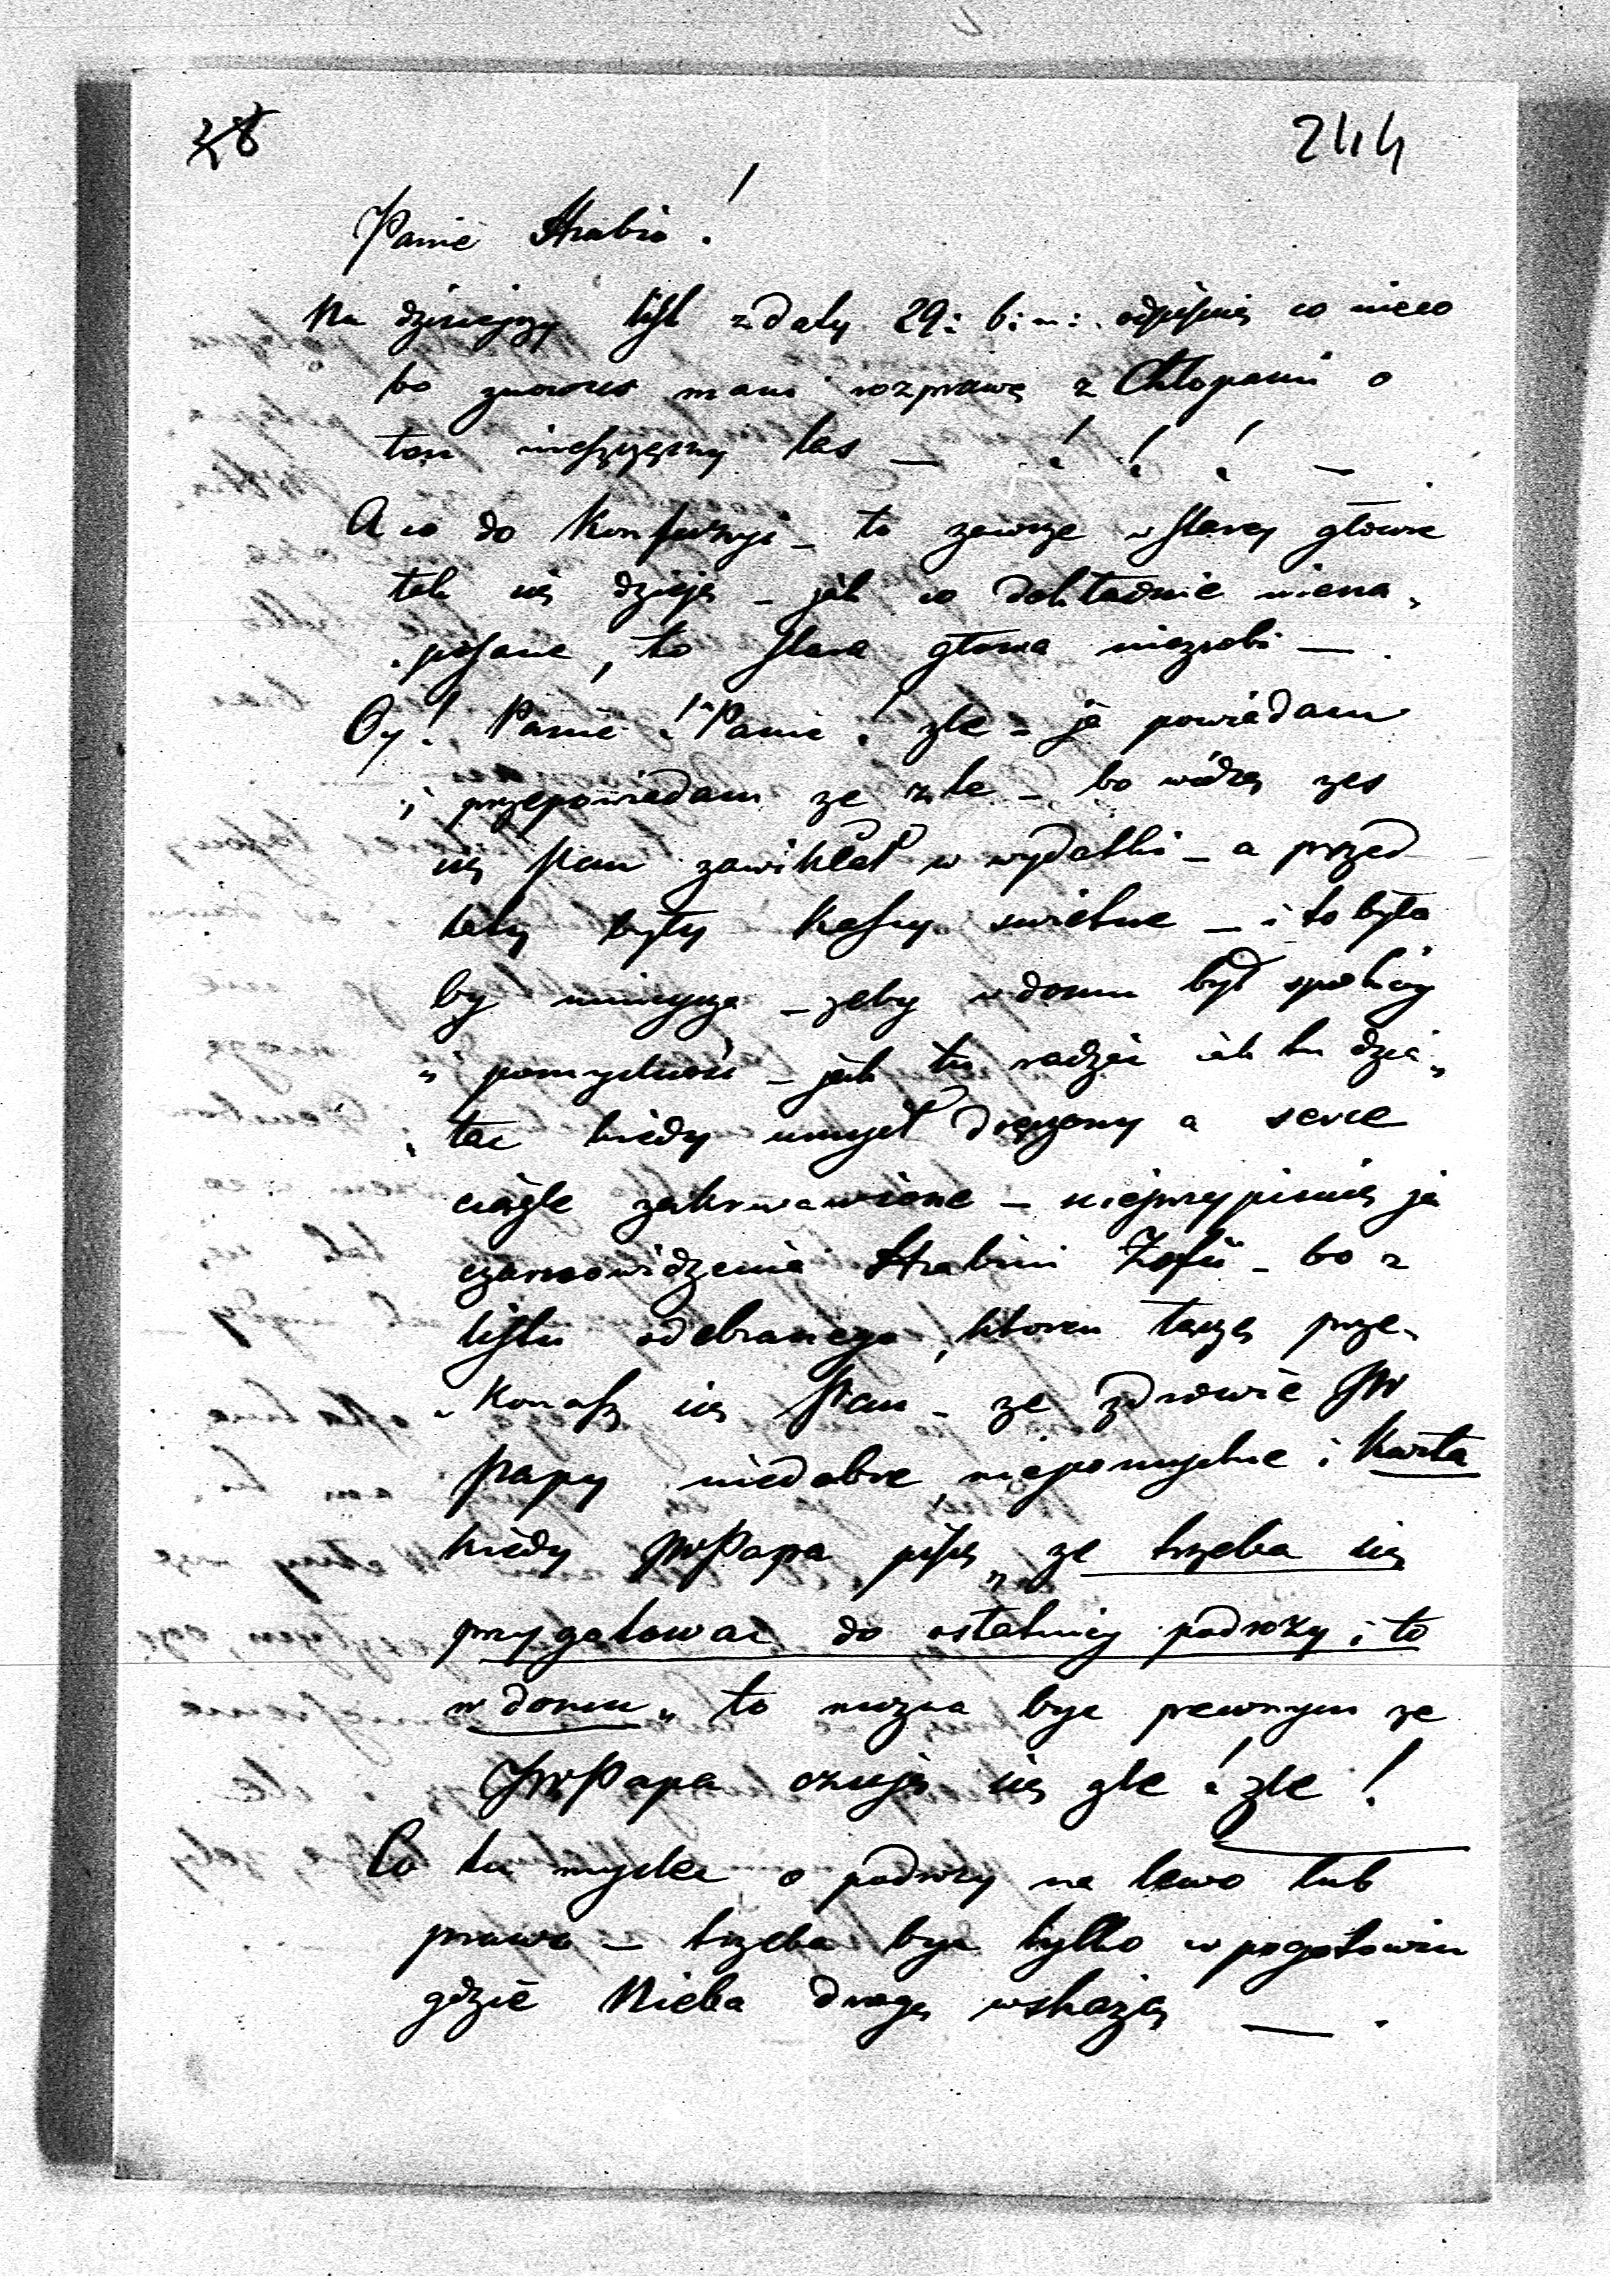 28
244
Panie Hrabio!
Na dzisiejszy list z daty 29: b: m: odpisuię co nieco
bo znowus mam rozprawę z Chłopami o
ten nieszczęsny las — ! ! ! —
A co do Konfuzyi – to zawsze w starej głowie
tak się dzieje – jak co dokładnie niena„
„pisane, to stara głowa niezrobi —.
Oy! Panie! Panie! zle – ja powiadam
i przepowiadam ze zle – bo widzę zes
się Pan zawikłał w wydatki – a przed
tely były Kassy swietne – i to była
by mniejsza – zeby w domu był spokój
i pomyslność – jak tu radzić jak tu dzia„
„łac kiedy umysł dręczony a serce
ciągle zakrwawione – niejprzypisuię ja
czarnowidzenia Hrabini Zofii – bo z
listu odebranego, ktoren łączę prze„
„Konasz się Pan – ze zdrowie JW
Papy niedobre, niepomyslne i Karta
kiedy JWPapa pisze „ze trzeba się
przygotowac do ostatniej podrozy i to
w domu„ to mozna byc pewnym ze
JWPapa czuje się zle! zle!
Co tu myslec o podrozy na lewo lub
prawo – trzeba byc tylko w pogotowiu
gdzie Nieba drogę wskazą —.